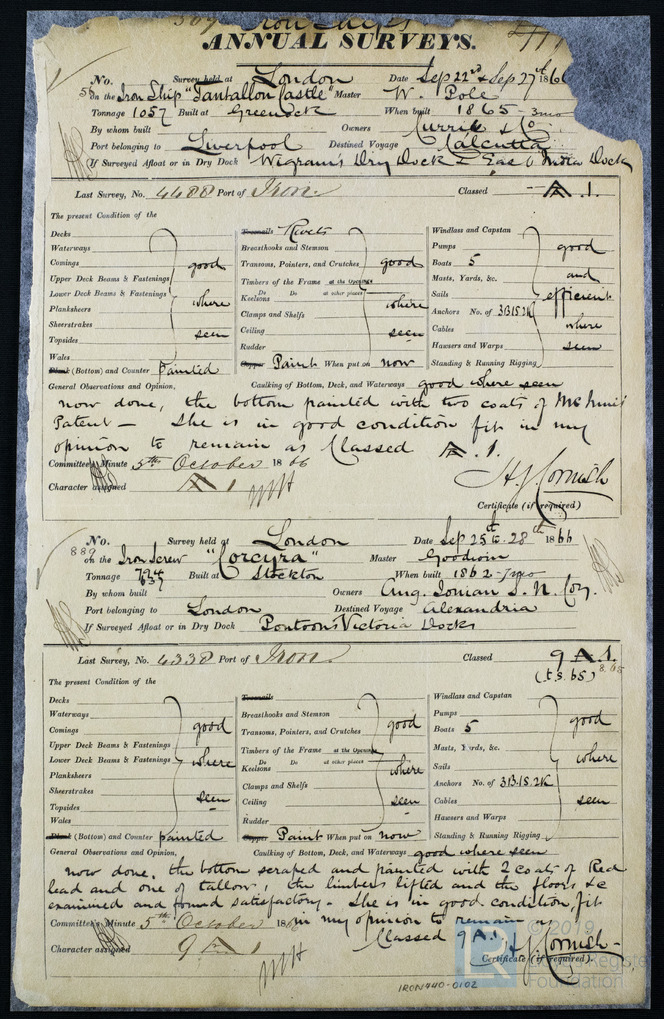 Iron Ships
ANNUAL SURVEYS.
No. Survey held at London Date Sep 22nd & Sep 27th 1866
on the Iron Ship "Tantallon Castle" Master W. Pole
Tonnage 1057 Built at Greenock When built 1865 - 3mo
By whom built Owners Currie & Co.
Port belonging to Liverpool Destined Voyage Calcutta
If Surveyed Afloat or in Dry Dock Wigram's Dry Dock & East India Dock
Last Survey, No. 4488 Port of Iron. Classed A.1.
The present Condition of the
Decks
Waterways
Comings
Upper Deck Beams & Fastenings
Lower Deck Beams & Fastenings
Planksheers
Sheerstrakes
Topsides
Wales
good where seen
(Bottom) and Counter painted
Treenails Rivets
Breasthooks and Stemson
Transoms, Pointers, and Crutches
Timbers of the Frame at the Openings
Do Do at other places
Keelsons
Clamps and Shelfs
Ceiling
Rudder
good where seen
Copper Paint When put on now
Windlass and Capstan
Pumps
Boats 5
Masts, Yards, &c.
Sails
Anchors No. of 3B.1S.2K
Cables
Hawsers and Warps
Standing & Running Rigging
good and efficient where seen
General Observations and Opinion, Caulking of Bottom, Deck, and Waterways good where seen
now done, the bottom painted with two coats of
Patent - She is in good condition fit in my
opinion to remain as Classed A.1.
Committee's Minute 5th October 1866
Character assigned A 1
H J Cornish
Certificate (if required)
No. Survey held at London Date Sep 25th to 28th 1866
889
on the Iron Screw "Corcyra" Master Goodwin
Tonnage Built at Stockton When built 1862 - 7mo
By whom built Owners Ang. Ionian S. N. Coy.
Port belonging to London Destined Voyage Alexandria
If Surveyed Afloat or in Dry Dock Pontoons Victoria Docks
Last Survey, No. 4338 Port of Iron. Classed 9 A.1.
(t.s. 65) 8.65
The present Condition of the
Decks
Waterways
Comings
Upper Deck Beams & Fastenings
Lower Deck Beams & Fastenings
Planksheers
Sheerstrakes
Topsides
Wales
good where seen
(Bottom) and Counter painted
Treenails
Breasthooks and Stemson
Transoms, Pointers, and Crutches
Timbers of the Frame at the Openings
Do Do at other places
Keelsons
Clamps and Shelfs
Ceiling
Rudder
good where seen
Copper Paint When put on now
Windlass and Capstan
Pumps
Boats 5
Masts, Yards, &c.
Sails
Anchors No. of 3B.1S.2K
Cables
Hawsers and Warps
Standing & Running Rigging
good where seen
General Observations and Opinion, Caulking of Bottom, Deck, and Waterways good where seen
now done, the bottom scraped and painted with 2 coats of Red
lead and one of tallow, the limbers lifted and the floors, &c
examined and found satisfactory - She is in good condition, fit
in my opinion to remain as
Classed 9 A.1.
Committee's Minute 5th October 186
Character assigned 9 A 1
H J Cornish
Certificate (if required).
© 2019
LR Lloyd's Register
Foundation
IRON440-0102